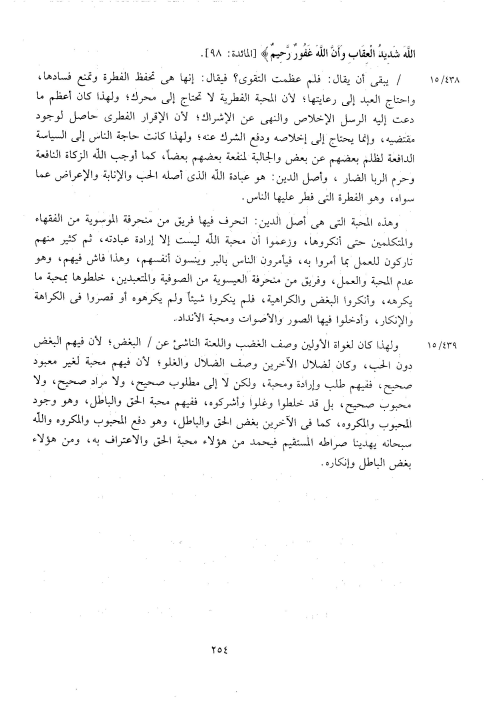 اللَّهَ شَدِيدُ الْعِقَابِ وَأَنَّ اللَّهَ غَفُورٌ رَّحِيمٌ﴾ [المائدة: ٩٨].
١٥/٤٣٨ / يبقى أن يقال: فلم عظمت التقوى؟ فيقال: إنها هى تحفظ الفطرة وتمنع فسادها،
واحتاج العبد إلى رعايتها؛ لأن المحبة الفطرية لا تحتاج إلى محرك؛ ولهذا كان أعظم ما
دعت إليه الرسل الإخلاص والنهى عن الإشراك؛ لأن الإقرار الفطرى حاصل لوجود
مقتضيه، وإنما يحتاج إلى إخلاصه ودفع الشرك عنه؛ ولهذا كانت حاجة الناس إلى السياسة
الدافعة لظلم بعضهم عن بعض والجالبة لمنفعة بعضهم بعضاً، كما أوجب الله الزكاة النافعة
وحرم الربا الضار ، وأصل الدين: هو عبادة الله الذى أصله الحب والإنابة والإعراض عما
سواه، وهو الفطرة التى فطر عليها الناس.
وهذه المحبة التى هى أصل الدين: انحرف فيها فريق من منحرفة الموسوية من الفقهاء
والمتكلمين حتى أنكروها، وزعموا أن محبة الله ليست إلا إرادة عبادته، ثم كثير منهم
تاركون للعمل بما أمروا به، فيأمرون الناس بالبر وينسون أنفسهم، وهذا فاش فيهم، وهو
عدم المحبة والعمل، وفريق من منحرفة العيسوية من الصوفية والمتعبدين، خلطوها بمحبة ما
يكرهه، وأنكروا البغض والكراهية، فلم ينكروا شيئاً ولم يكرهوه أو قصروا فى الكراهة
والإنكار، وأدخلوا فيها الصور والأصوات ومحبة الأنداد.
١٥/٤٣٩ ولهذا كان لغواة الأولين وصف الغضب واللعنة الناشئ عن / البغض؛ لأن فيهم البغض
دون الحب، وكان لضلال الآخرين وصف الضلال والغلو؛ لأن فيهم محبة لغير معبود
صحيح، ففيهم طلب وإرادة ومحبة، ولكن لا إلى مطلوب صحيح، ولا مراد صحيح، ولا
محبوب صحيح، بل قد خلطوا وغلوا وأشركوه، ففيهم محبة الحق والباطل، وهو وجود
المحبوب والمكروه، كما فى الآخرين بغض الحق والباطل، وهو دفع المحبوب والمكروه والله
سبحانه يهدينا صراطه المستقيم فيحمد من هؤلاء محبة الحق والاعتراف به، ومن هؤلاء
بغض الباطل وإنكاره.
٢٥٤